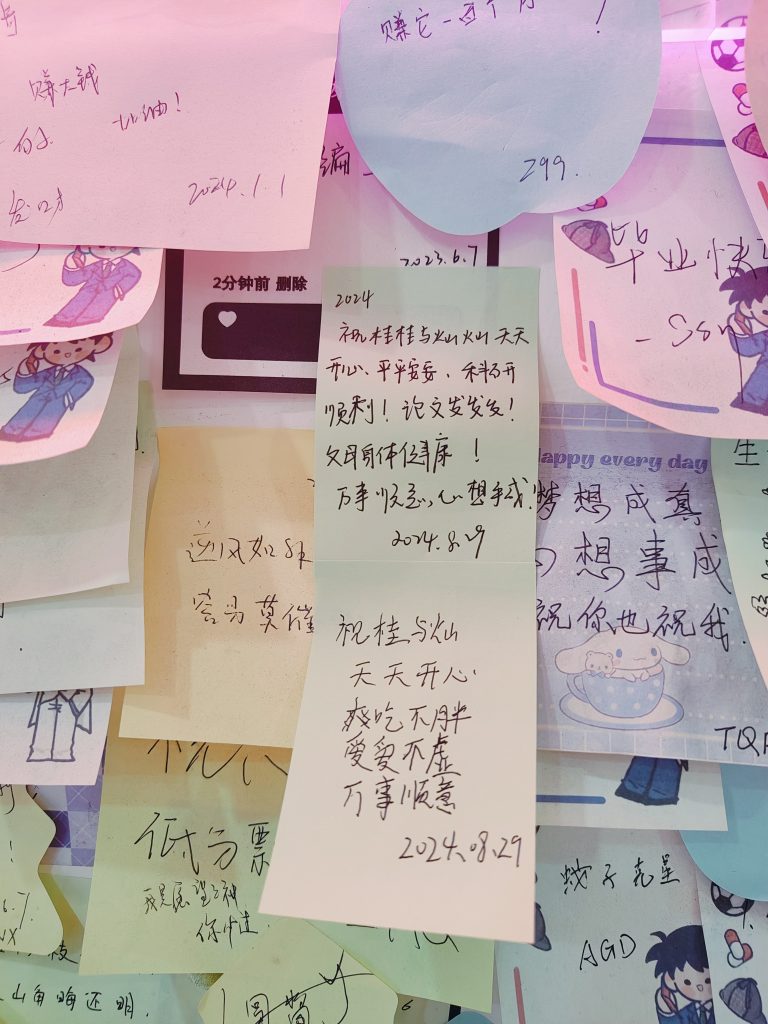 赚大钱
加油！
2024.1.1
赚它一百个
！
299.
2023.6.7
2分钟前 删除
毕业快
2024
祝桂桂与灿灿天天
开心、平平安安、科研
顺利！论文发发发！
父母身体健康！
万事顺意，心想事成！
2024.8.29
祝桂与灿
天天开心
爽吃不胖
爱爱不虚
万事顺意
2024.08.29
逆风如
appy every day
梦想成真
想事成
祝你也祝我.
TQ
低分票
蚊子克星
AGD
山角晦还明.